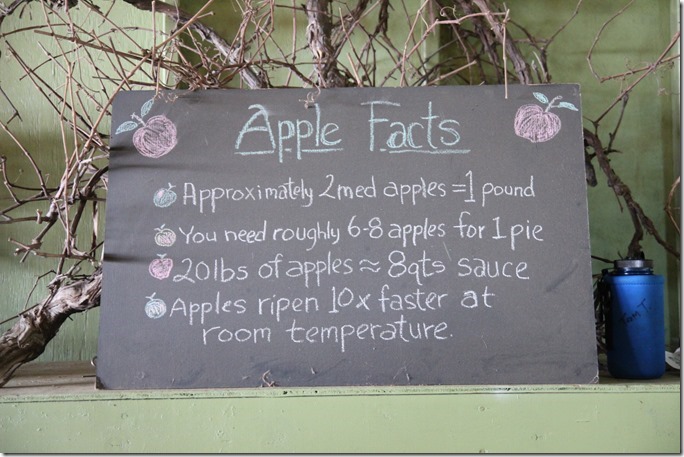 Apple Facts
Approximately 2 med apples = 1 pound
You need roughly 6-8 apples for 1 pie
20lbs of apples ≈ 8qts sauce
Apples ripen 10x faster at
room temperature.
Tom T.